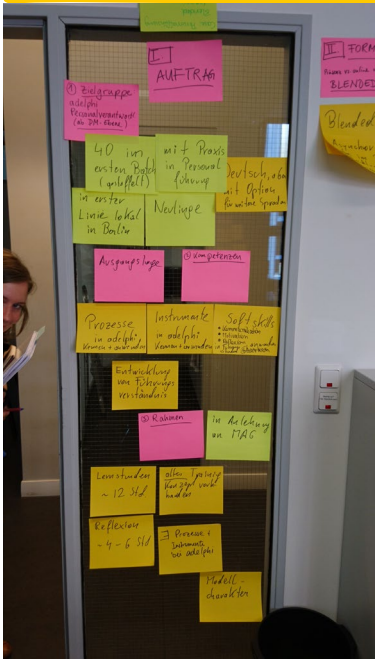 I.
AUFTRAG
① Zielgruppe
adelphi
Personalverantwortl.
(ab DM-Ebene)
40 im
ersten Batch
(gestaffelt)
mit Praxis
in Personal
führung
in erster
Linie lokal
in Berlin
Neulinge
Deutsch, aber
mit Option
für weitere Sprachen
Ausgangslage
② Kompetenzen
Prozesse
in adelphi,
kennen + anwenden
Instrumente
in adelphi
kennen + anwenden
Softskills
Kommunikation
Motivation
Reflexion
anwenden
Entwicklung
von Führungs
verständnis
③ Rahmen
in Anlehnung
an MAG
Lernstunden
~ 12 Std
altes Training
Konzept vorh
handen
Reflexion
~ 4 - 6 Std
∃ Prozesse +
Instrumente
bei adelphi
Modell-
charakter
II. FORM
BLENDED
Blended